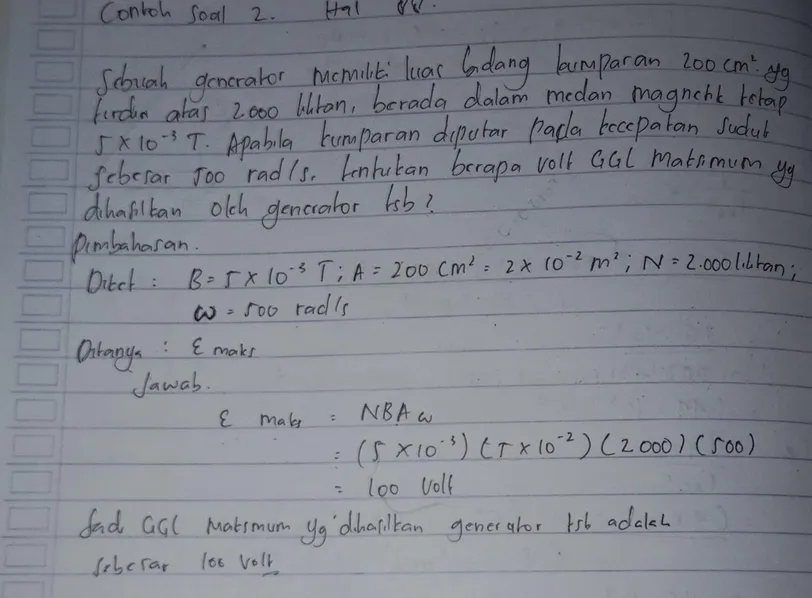 Contoh Soal 2. Hal
Sebuah generator memiliki luas bidang kumparan 200 cm² yg
terdiri atas 2.000 lilitan, berada dalam medan magnetik tetap
5 × 10⁻³ T. Apabila kumparan diputar pada kecepatan sudut
sebesar 500 rad/s, tentukan berapa volt GGL Maksimum yg
dihasilkan oleh generator tsb?
Pembahasan.
Diket : B = 5 × 10⁻³ T ; A = 200 cm² = 2 × 10⁻² m² ; N = 2.000 lilitan ;
ω = 500 rad/s
Ditanya : ε maks
Jawab.
ε maks = NBA ω
= (5 × 10⁻³) (5 × 10⁻²) (2000) (500)
= 100 Volt
Jadi GGL Maksimum yg dihasilkan generator tsb adalah
sebesar 100 Volt